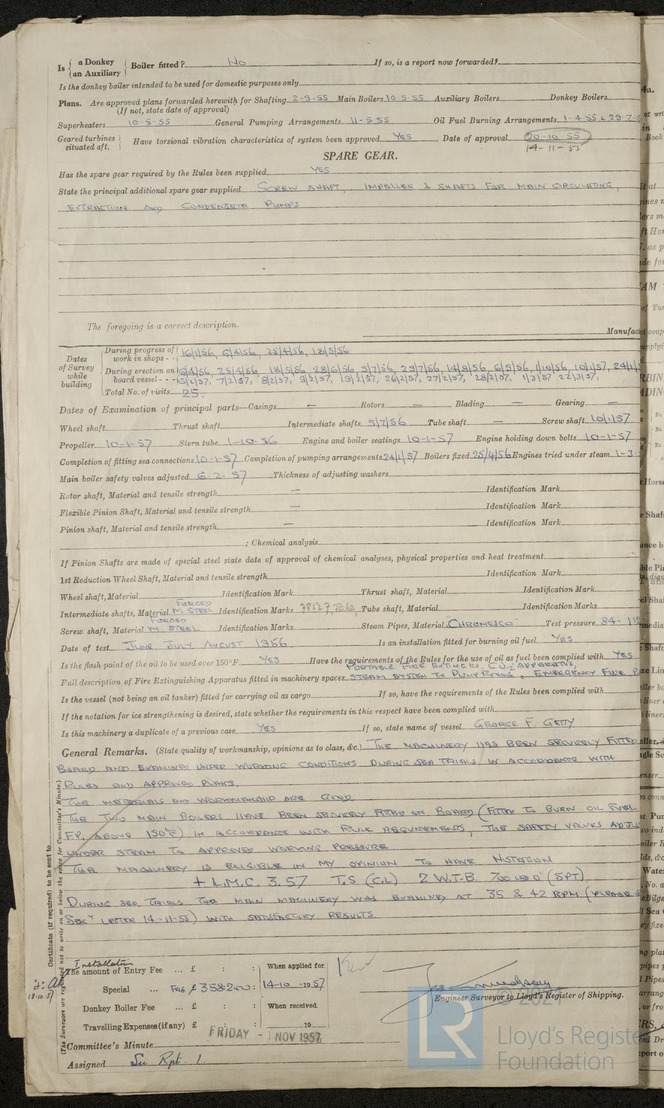 Is { a Donkey / an Auxiliary } Boiler fitted? No If so, is a report now forwarded?
Is the donkey boiler intended to be used for domestic purposes only
Plans. Are approved plans forwarded herewith for Shafting 2-9-55 Main Boilers 10-5-55 Auxiliary Boilers Donkey Boilers
(If not, state date of approval)
Superheaters 10-5-55 General Pumping Arrangements 11-5-55 Oil Fuel Burning Arrangements 1-4-55 & 29-7-5
Geared turbines situated aft. Have torsional vibration characteristics of system been approved YES Date of approval 20-10-55
14-11-55
SPARE GEAR.
Has the spare gear required by the Rules been supplied YES
State the principal additional spare gear supplied SCREW SHAFT, IMPELLER & SHAFTS FOR MAIN CIRCULATING,
EXTRACTION AND CONDENSATE PUMPS
The foregoing is a correct description.
Manufac
Dates of Survey while building
During progress of work in shops - - 16/1/56, 6/4/56, 25/4/56, 18/5/56
During erection on board vessel - - - 6/4/56, 25/4/56, 18/5/56, 28/6/56, 5/7/56, 29/7/56, 14/8/56, 6/9/56, 1/10/56, 10/1/57, 24/1/
6/2/57, 7/2/57, 8/2/57, 9/2/57, 19/2/57, 26/2/57, 27/2/57, 28/2/57, 1/3/57 22/3/57,
Total No. of visits 25
Dates of Examination of principal parts—Casings — Rotors — Blading — Gearing —
Wheel shaft Thrust shaft Intermediate shafts 5/7/56 Tube shaft — Screw shaft 10/1/57
Propeller 10-1-57 Stern tube 1-10-56 Engine and boiler seatings 10-1-57 Engine holding down bolts 10-1-57
Completion of fitting sea connections 10-1-57 Completion of pumping arrangements 24/1/57 Boilers fixed 25/4/56 Engines tried under steam 1-3-
Main boiler safety valves adjusted 6-2-57 Thickness of adjusting washers
Rotor shaft, Material and tensile strength — Identification Mark
Flexible Pinion Shaft, Material and tensile strength — Identification Mark
Pinion shaft, Material and tensile strength — Identification Mark
; Chemical analysis
If Pinion Shafts are made of special steel state date of approval of chemical analyses, physical properties and heat treatment
1st Reduction Wheel Shaft, Material and tensile strength Identification Mark
Wheel shaft, Material Identification Mark Thrust shaft, Material Identification Mark
Intermediate shafts, Material FORGED M. STEEL Identification Marks Tube shaft, Material Identification Marks
Screw shaft, Material FORGED M. STEEL Identification Marks Steam Pipes, Material CHROMESCO Test pressure 84-
Date of test JUNE JULY AUGUST 1956 Is an installation fitted for burning oil fuel YES
Is the flash point of the oil to be used over 150°F. YES Have the requirements of the Rules for the use of oil as fuel been complied with YES
Full description of Fire Extinguishing Apparatus fitted in machinery spaces PORTABLE FIRE EXTING'S CO2 APPARATUS,
STEAM SYSTEM TO PUMP ROOMS, EMERGENCY FIRE P
Is the vessel (not being an oil tanker) fitted for carrying oil as cargo If so, have the requirements of the Rules been complied with
If the notation for ice strengthening is desired, state whether the requirements in this respect have been complied with
Is this machinery a duplicate of a previous case YES If so, state name of vessel GEORGE F. GETTY
General Remarks. (State quality of workmanship, opinions as to class, &c.) THE MACHINERY HAS BEEN SECURELY FITTED
BOARD AND EXAMINED UNDER WORKING CONDITIONS DURING SEA TRIALS, IN ACCORDANCE WITH
RULES AND APPROVED PLANS.
THE MATERIALS AND WORKMANSHIP ARE GOOD
THE TWO MAIN BOILERS HAVE BEEN SECURELY FITTED ON BOARD (FITTED TO BURN OIL FUEL
F.P. ABOVE 150°F) IN ACCORDANCE WITH RULE REQUIREMENTS, THE SAFETY VALVES ADJU
UNDER STEAM TO APPROVED WORKING PRESSURE
THE MACHINERY IS ELIGIBLE IN MY OPINION TO HAVE NOTATION
+ L.M.C. 3.57 T.S (C.L) 2 W.T.B. 700 LB □" (SPT)
DURING SEA TRIALS THE MAIN MACHINERY WAS EXAMINED AT 35 & 42 RPM (PLEASE S
SECY LETTER 14-11-55) WITH SATISFACTORY RESULTS
Certificate (if required) to be sent to
(The Surveyors are requested not to write on or below the space for Committee's Minute.)
Installation
The amount of Entry Fee ... £ : :
Special ... Fee £ 358200 :
Donkey Boiler Fee ... £ : :
Travelling Expenses (if any) £ : :
When applied for. 14-10-1957
When received. 19
Engineer Surveyor to Lloyd's Register of Shipping.
FRIDAY - 1 NOV 1957
Committee's Minute
Assigned See Rpt. 1
18-10-57
© 2021
LR
Lloyd's Register
Foundation